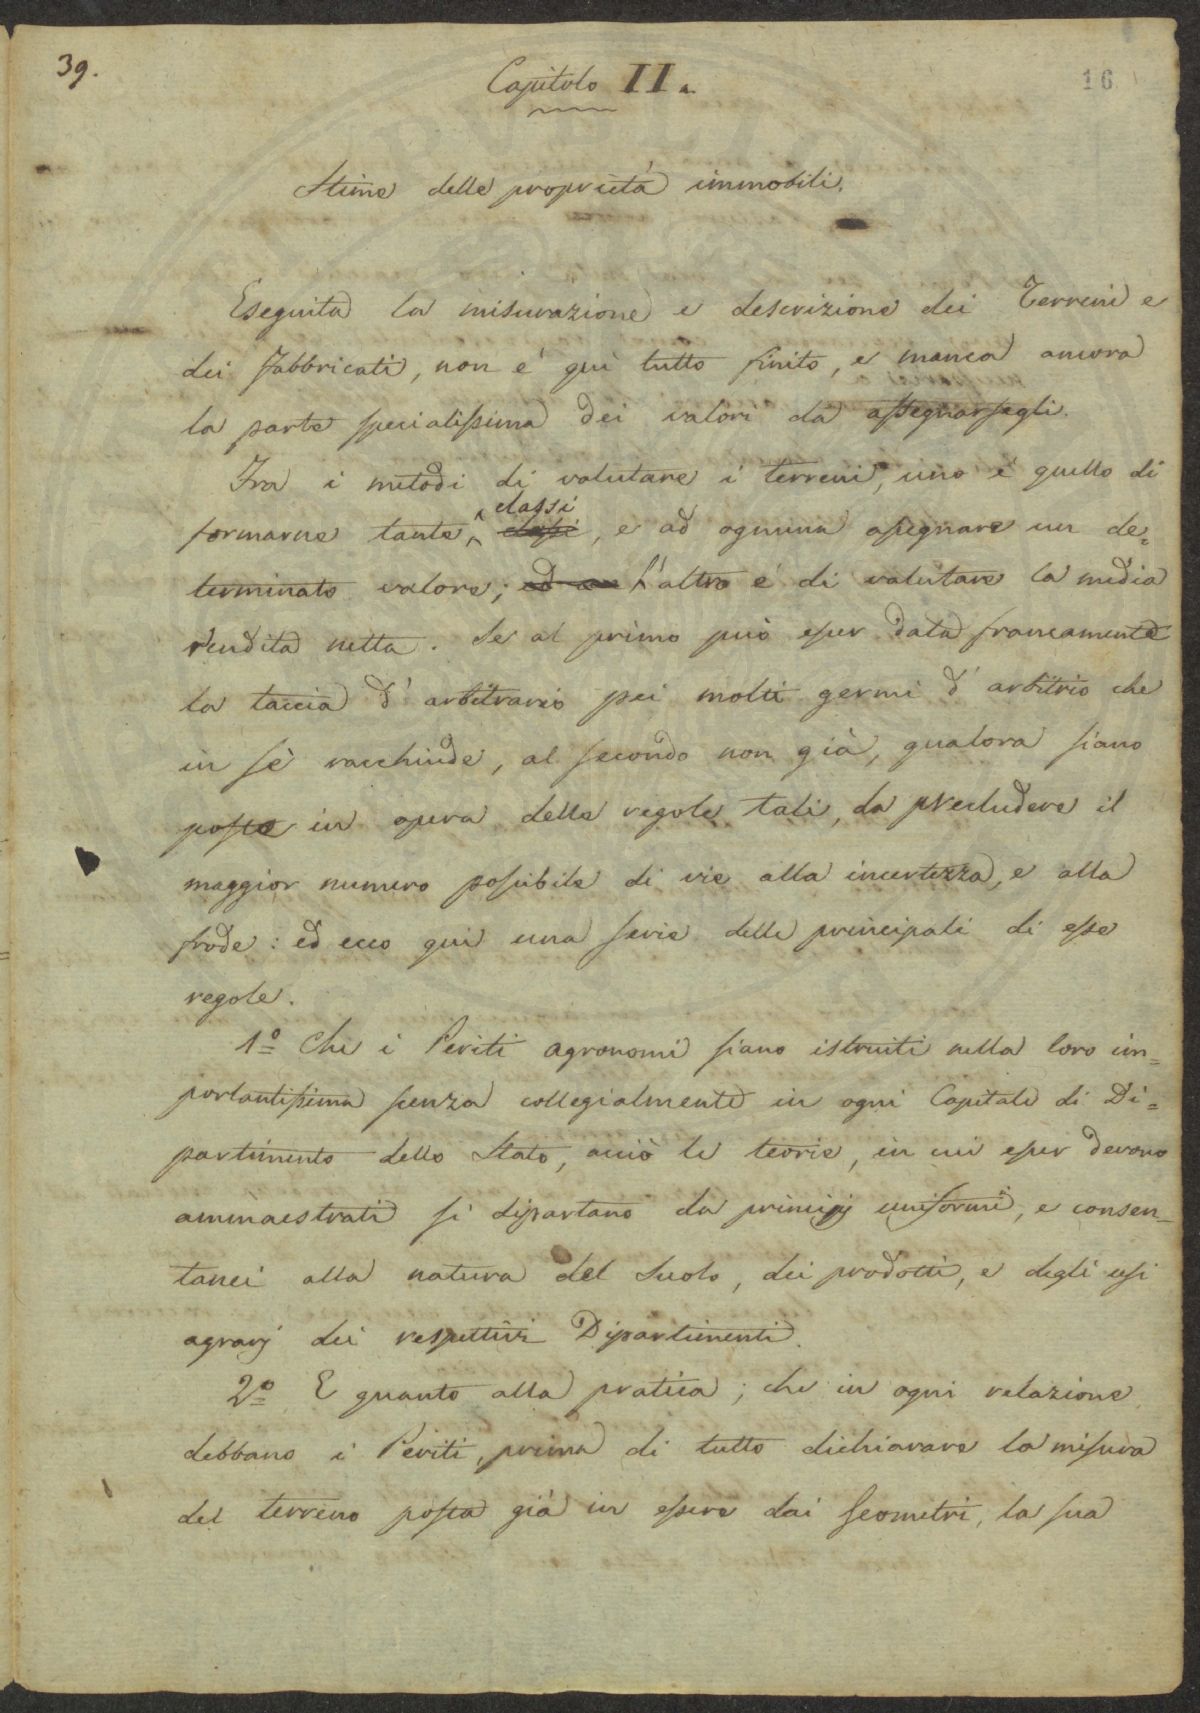 39.
16
Capitolo II.
Stime delle proprietà immobili.
Eseguita la misurazione e descrizione dei Terreni e
dei fabbricati, non è quì tutto finito, e manca ancora
la parte specialissima dei valori da assegnarsegli.
Fra i metodi di valutare i terreni, uno è quello di
formarne tante classi, e ad ognuna assegnare un de=
terminato valore; l'altro è di valutare la media
rendita netta. Se al primo può esser data francamente
la taccia d'arbitrario pei molti germi d'arbitrio che
in sè racchiude, al secondo non già, qualora siano
poste in opera delle regole tali, da precludere il
maggior numero possibile di vie alla incertezza, e alla
frode: ed ecco quì una serie delle principali di esse
regole.
1º Che i Periti agronomi siano istruiti nella loro im=
portantissima scenza collegialmente in ogni Capitale di Di=
partimento dello Stato, acciò le teorie, in cui esser devono
ammaestrati si dipartano da principj uniformi, e consen=
tanei alla natura del Suolo, dei prodotti, e degli usi
agrarj dei respettivi Dipartimenti.
2º E quanto alla pratica; che in ogni relazione
debbano i Periti, prima di tutto dichiarare la misura
del terreno posta già in essere dai Geometri, la sua